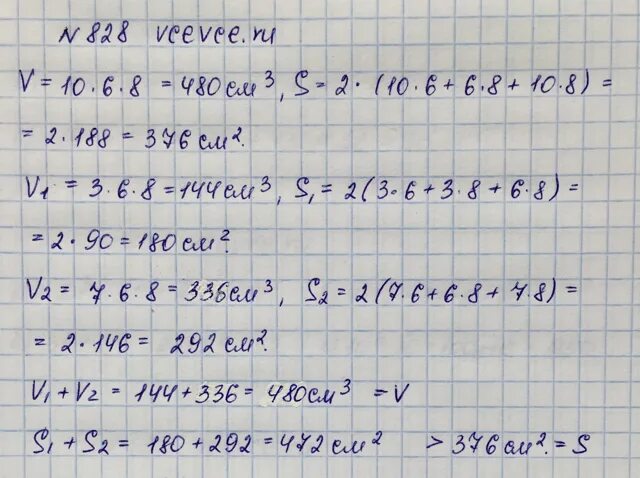 N 828 vcevce.ru
V = 10·6·8 = 480 см³, S = 2·(10·6 + 6·8 + 10·8) =
= 2·188 = 376 см².
V₁ = 3·6·8 = 144 см³, S₁ = 2(3·6 + 3·8 + 6·8) =
= 2·90 = 180 см².
V₂ = 7·6·8 = 336 см³, S₂ = 2(7·6 + 6·8 + 7·8) =
= 2·146 = 292 см².
V₁ + V₂ = 144 + 336 = 480 см³ = V
S₁ + S₂ = 180 + 292 = 472 см² > 376 см². = S